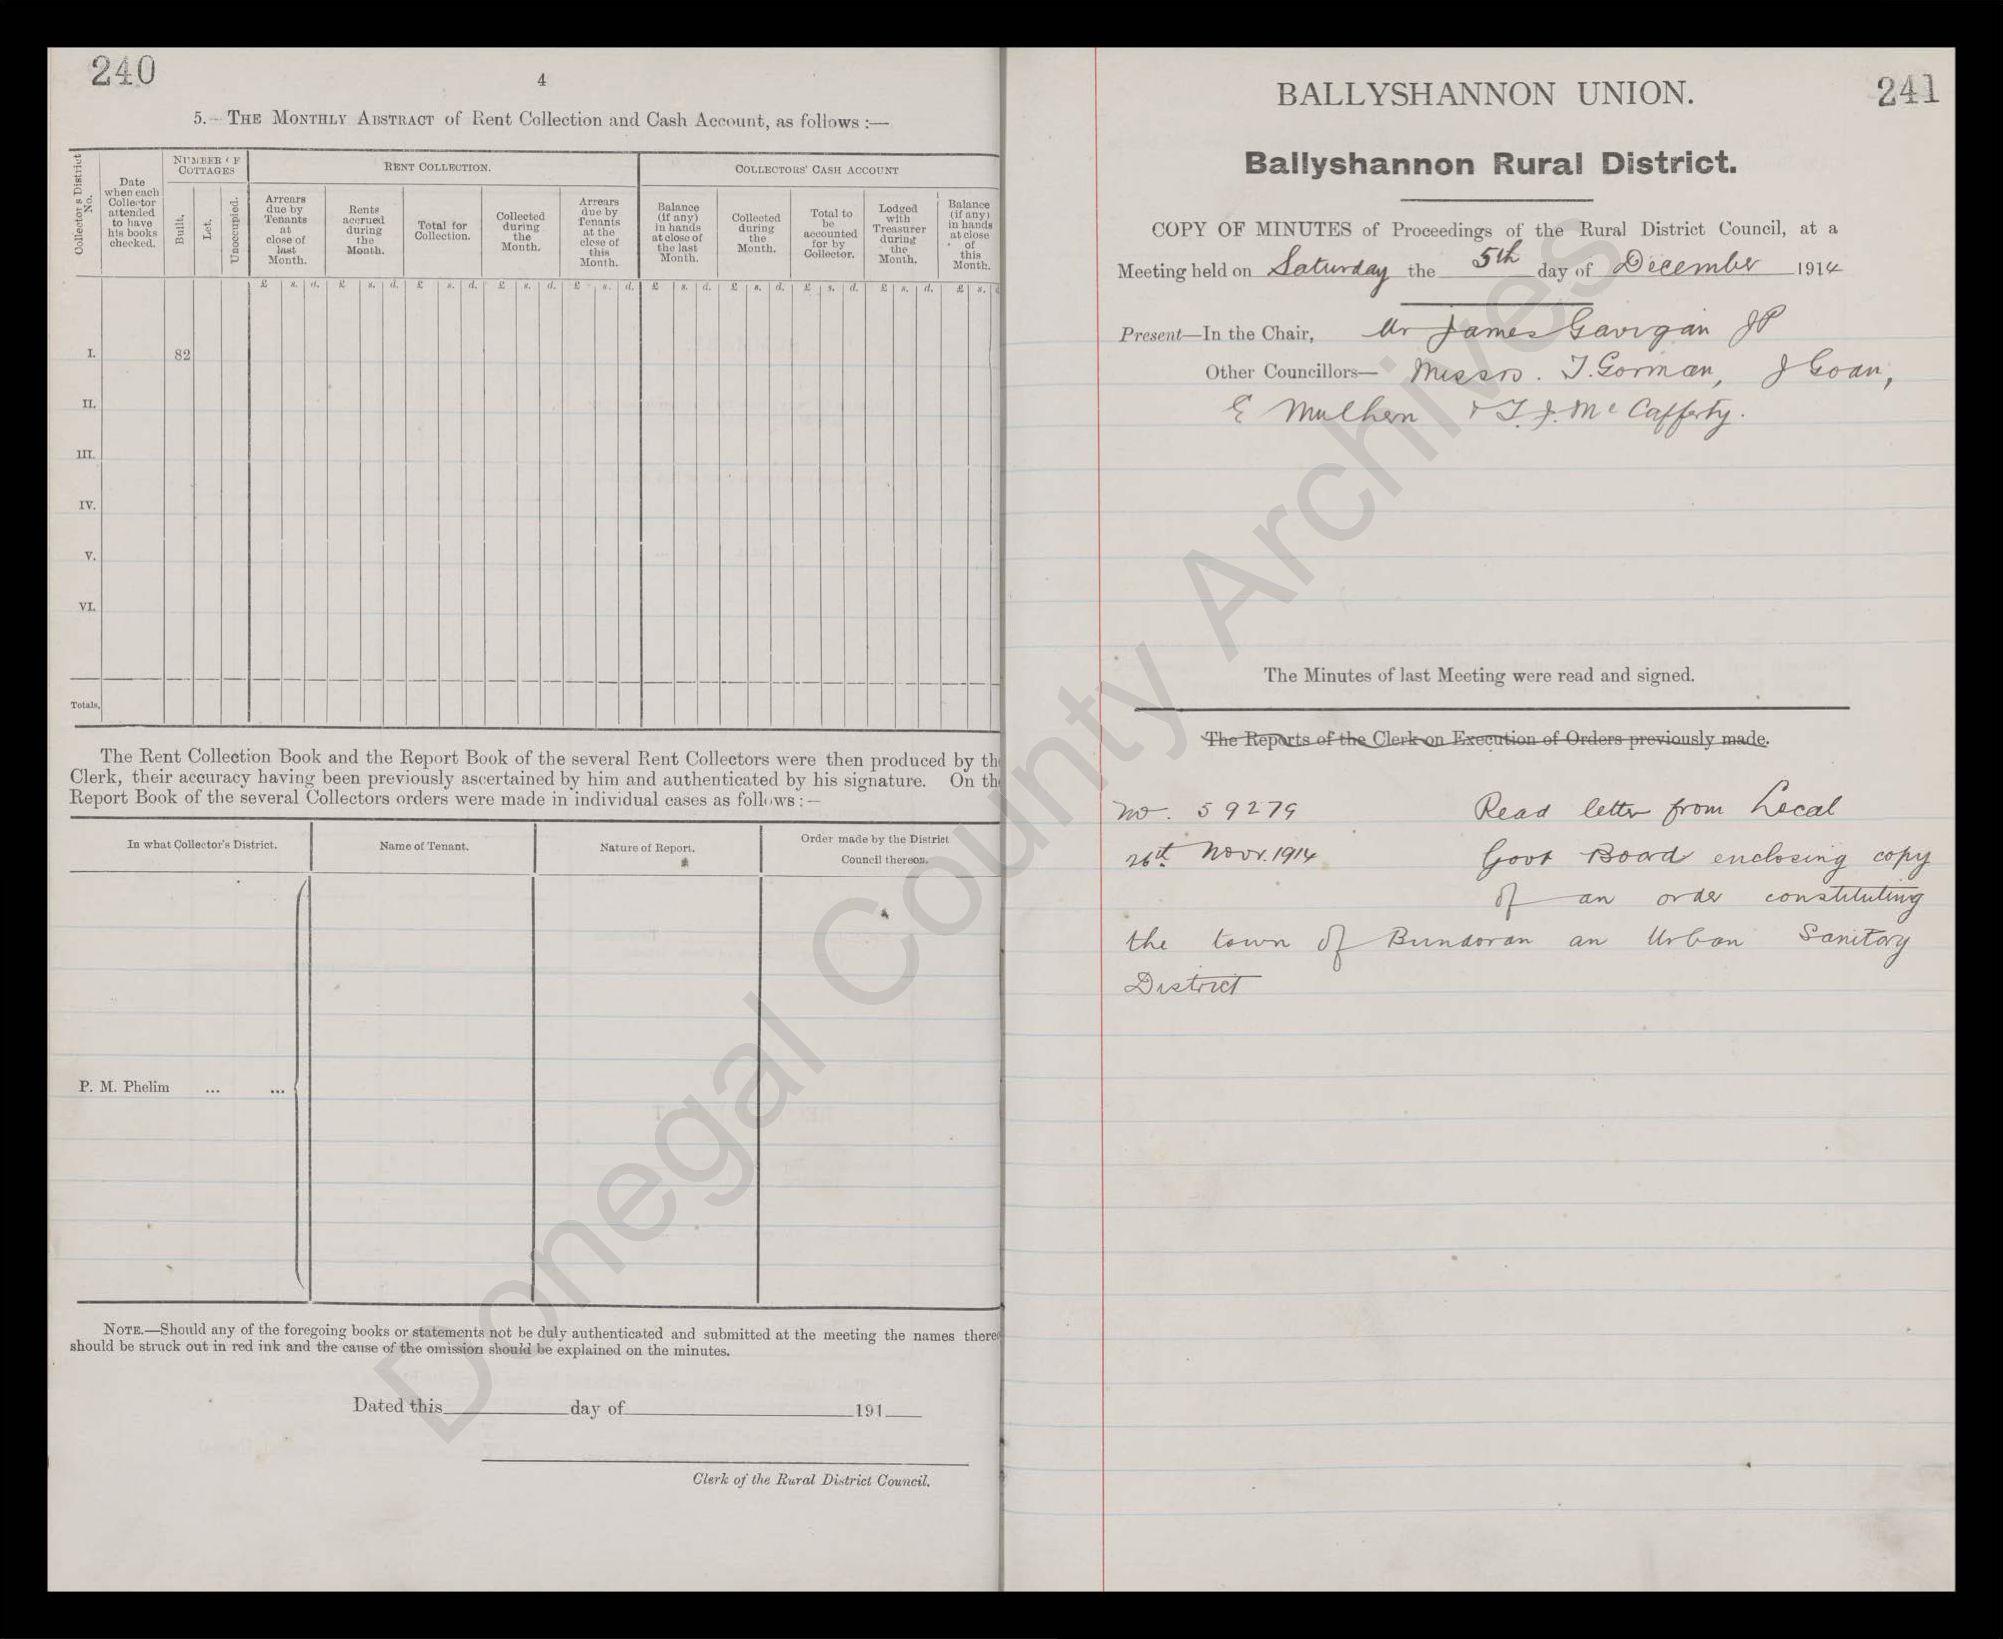 240
4
5.— THE MONTHLY ABSTRACT of Rent Collection and Cash Account, as follows :—
Collector's District No.
Date when each Collector attended to have his books checked.
NUMBER OF COTTAGES
Built.
Let.
Unoccupied.
RENT COLLECTION.
Arrears due by Tenants at close of last Month.
Rents accrued during the Month.
Total for Collection.
Collected during the Month.
Arrears due by Tenants at the close of this Month.
COLLECTORS' CASH ACCOUNT
Balance (if any) in hands at close of the last Month.
Collected during the Month.
Total to be accounted for by Collector.
Lodged with Treasurer during the Month.
Balance (if any) in hands at close of this Month.
£ s. d. £ s. d. £ s. d. £ s. d. £ s. d. £ s. d. £ s. d. £ s. d. £ s. d. £ s.
I. 82
II.
III.
IV.
V.
VI.
Totals,
The Rent Collection Book and the Report Book of the several Rent Collectors were then produced by th
Clerk, their accuracy having been previously ascertained by him and authenticated by his signature. On th
Report Book of the several Collectors orders were made in individual cases as follows :—
In what Collector's District.
Name of Tenant.
Nature of Report.
Order made by the District
Council thereon.
P. M. Phelim ... ...
NOTE.—Should any of the foregoing books or statements not be duly authenticated and submitted at the meeting the names there
should be struck out in red ink and the cause of the omission should be explained on the minutes.
Dated this day of 191
Clerk of the Rural District Council.
241
BALLYSHANNON UNION.
Ballyshannon Rural District.
COPY OF MINUTES of Proceedings of the Rural District Council, at a
Meeting held on Saturday the 5th day of December 1914
Present—In the Chair, Mr James Gavigan JP
Other Councillors— Messrs. T. Gorman, J Goan,
E Mulhern & T. J. McCafferty.
The Minutes of last Meeting were read and signed.
The Reports of the Clerk on Execution of Orders previously made.
No. 59279 Read letter from Local
26th Novr. 1914 Govt Board enclosing copy
of an order constituting
the town of Bundoran an Urban Sanitary
District
Donegal County Archives